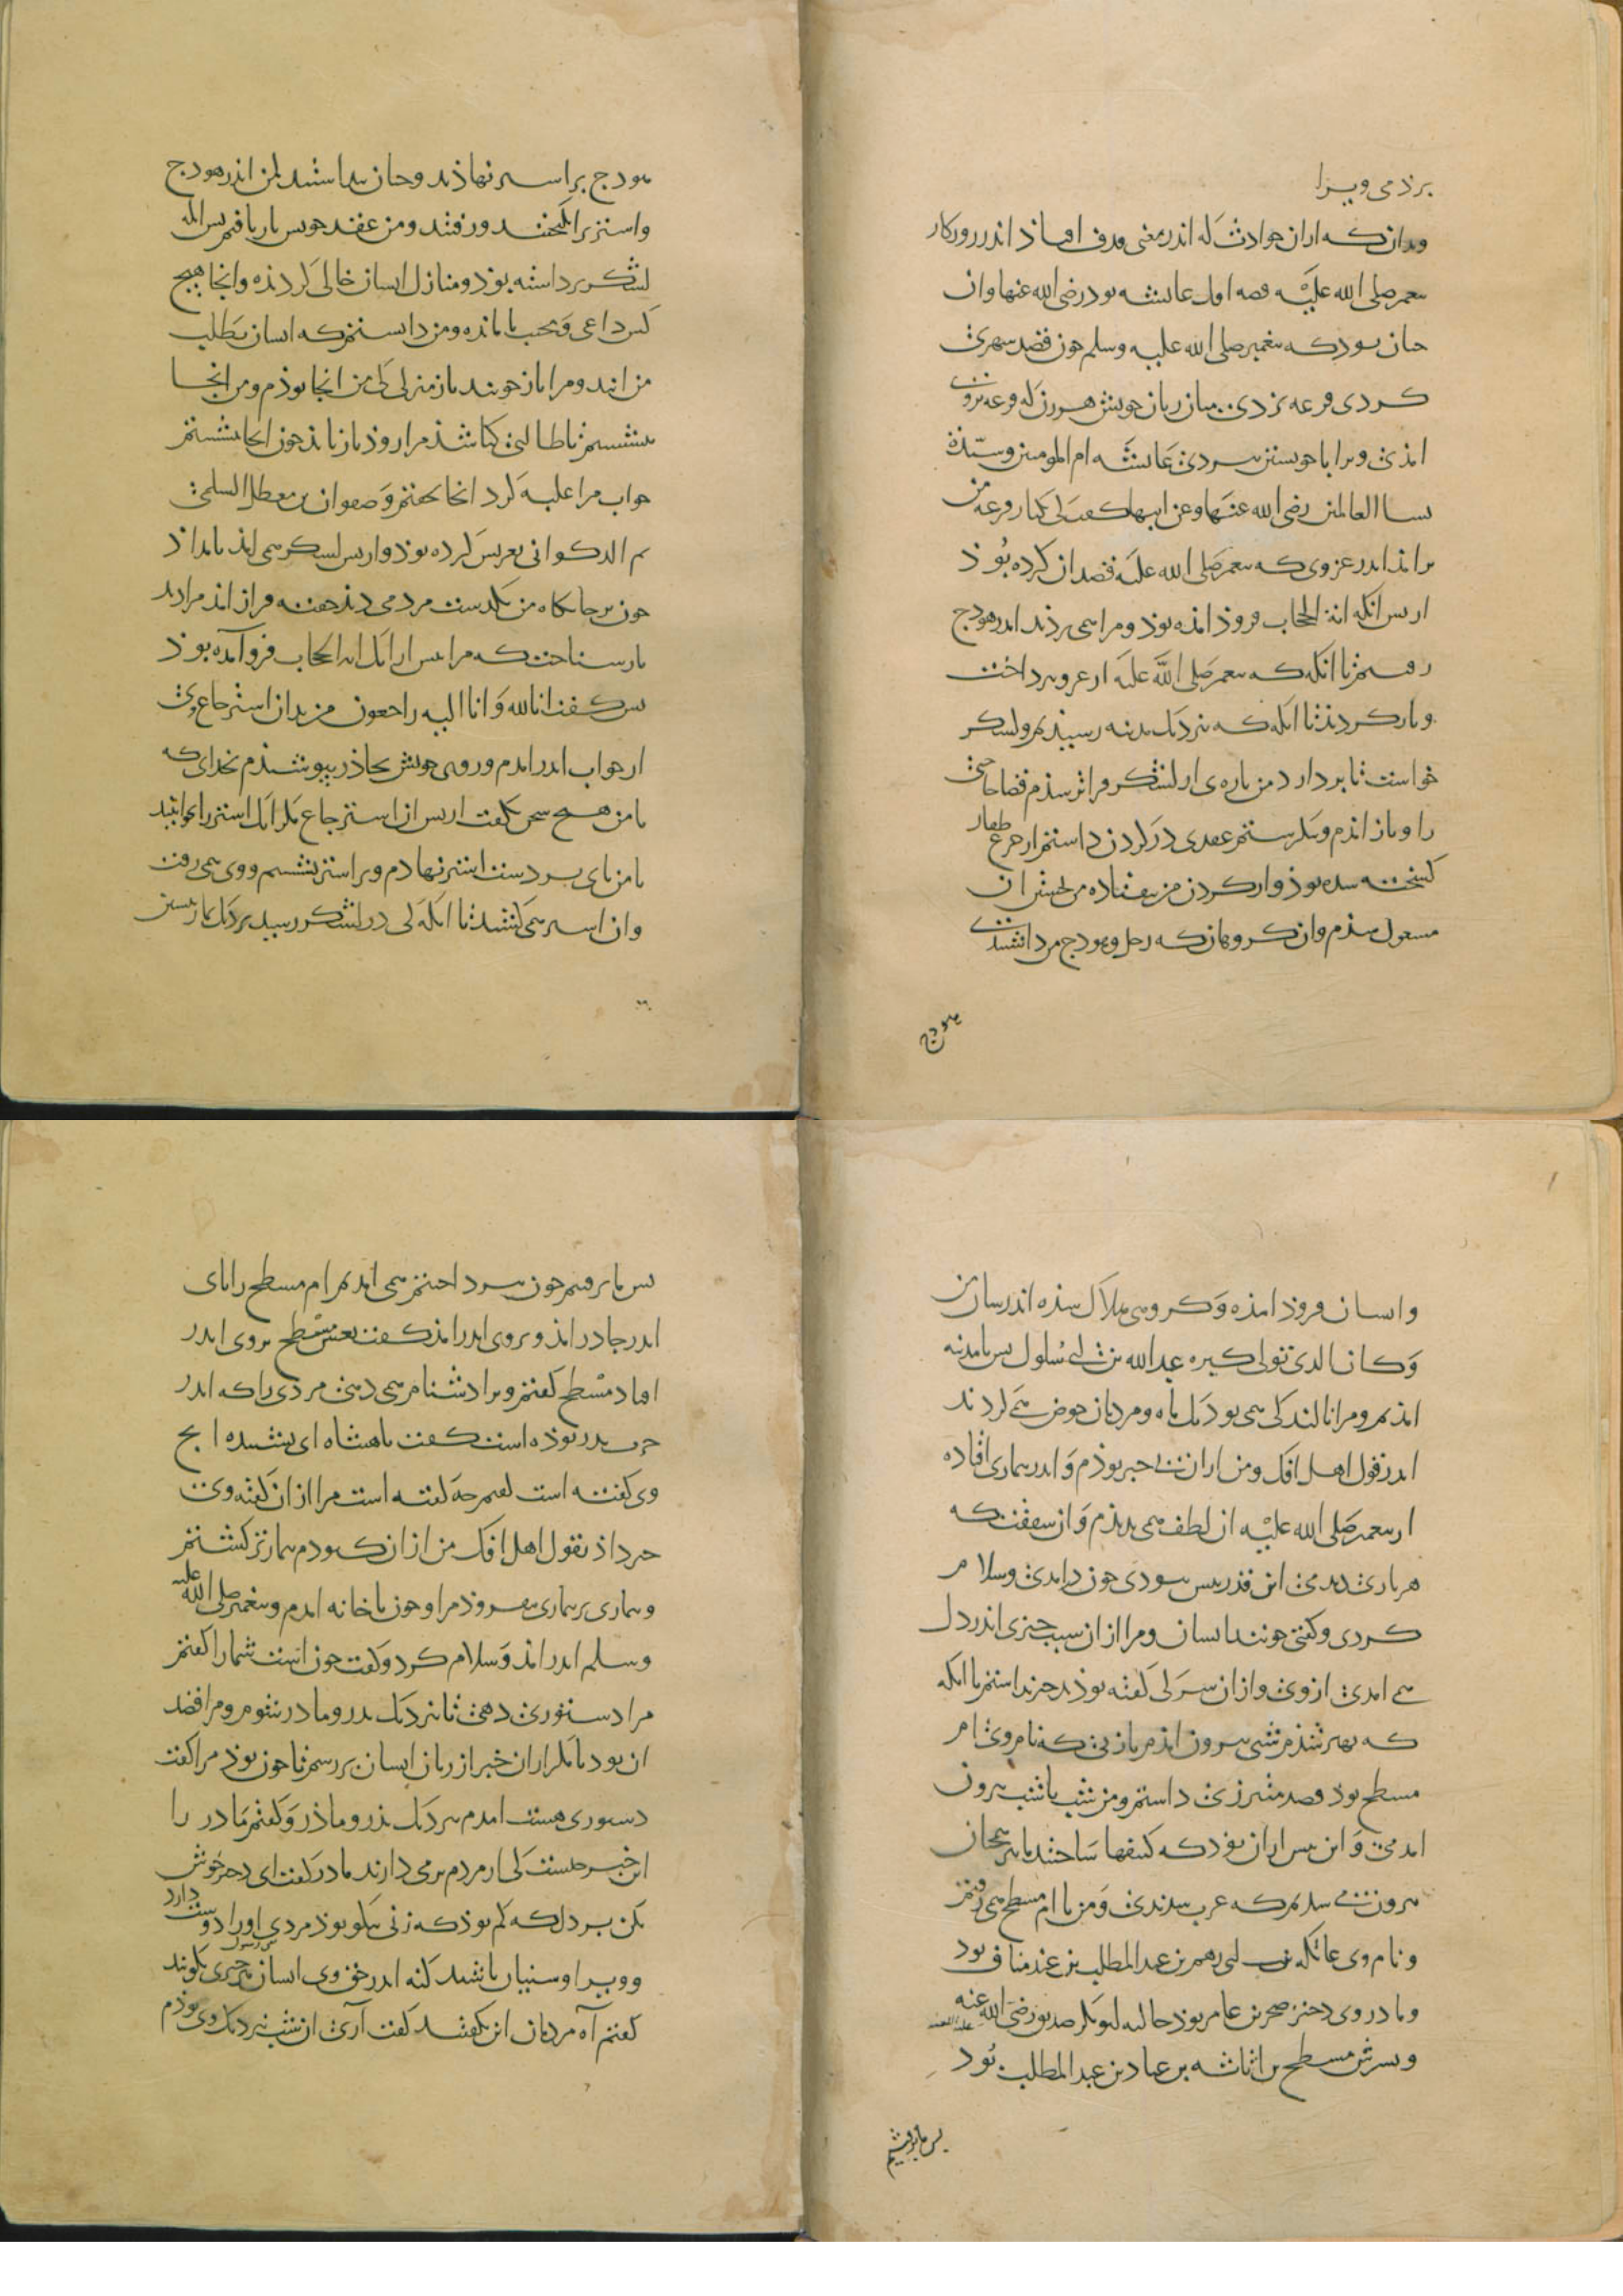 برذمی ویرا
وبدان که ازان حوادث که اندر معنی قذف افتاذ اندر روزکار
پیغمبر صلی الله علیه قصه اول عایشه بود رضی الله عنها وان
چنان بود که پیغمبر صلی الله علیه وسلم چون قصد سفری
کردی قرعه بزدی میان زنان خویش هر زن که قرعه برون
امذی ویرا با خویشتن ببردی عایشه ام المومنین وسیّدة
نسا العالمین رضی الله عنها وعن ابیها کفت کی یکبار قرعه من
برامذ اندر غزوی که پیغمبر صلی الله علیه قصد ان کرده بوذ
از پس انکه ایة الحجاب فروذ امذه بوذ ومرا همی بردند اندر هودج
رفتیم تا انکه که پیغمبر صلی الله علیه از غزو بپرداخت
وبازکردذ تا انکه که بنزدیک مدینه رسیذیم ولشکر
خواست تا بردارد من پاره‌ی از لشکر فراتر شذم قضا حاجتی
را وباز امذم وبنکرستم عقدی در کردن داشتم از جزع ظفار
کسخته شده بوذ واز کردن من بیفتاده من بجستن ان
مشغول شذم وان کروهان که رحل وهودج من داشتندی
هودج
هودج بر اشتر نهاذند وچنان پنداشتند کی من اندر هودجم
واشتر برانکیختند ورفتند ومن عقد خویش باز یافتم پس انکه
لشکر برداشته بوذ ومنازل ایشان خالی کردذه وانجا هیچ
کس داعی ومجیب نا مانده ومن دانستم که ایشان بطلب
من ایند ومرا باز جویند باز منزلی کی من انجا بوذم ومن انجا
بنشستم تا طالبی کجا شذ مرا روذ باز یابذ چون انجا بنشستم
خواب مرا غلبه کرد انجا بخفتم وصفوان بن معطل السلمی
ثم الذکوانی تعریس کرده بوذ واز پس لشکر همی امذ بامداذ
چون بر جایکاه من بکذشت مردمی دیذ خفته فراز امذ مرا دید
باز شناخت که مرا پیش ازانک ایه الحجاب فرو آمده بوذ
پس کفت انا لله وانا الیه راجعون من بدان استرجاع وی
از خواب اندر امدم وروی خویش بچاذر بپوشیذم بخدای که
با من هیچ سخن نکفت از پس ان استرجاع مکر انک اشتر را بخوابنید
تا من پای بر دست اشتر نهادم وبر اشتر نشستم ووی همی رفت
وان اشتر همی کشید تا انکه کی در لشکر رسید نزدیک نماز پیشین
وایشان فروذ امذه وکروهی هلاک شذه اندر شان من
وکان الذی تولی کبره عبد الله بن ابی سلول پس بامدینه
امذیم ومرا نالندکی همی بود یک ماه ومردمان خوض همی کردند
اندر قول اهل افک ومن ازان بی خبر بوذم واندر بیماری افتاده
از پیغمبر صلی الله علیه ان لطف همی ندیذم وان شفقت که
هر باری دیدمی این قذر بیش نبودی چون در امدی وسلام
کردی وکفتی چونند ایشان ومرا ازان سبب چیزی اندر دل
همی امدی از وی وازان سر کی کفته بوذند خبر نداشتم تا انکه
که بهتر شذم شبی برون امذم با زنی که نام وی ام
مسطح بوذ قصد مبرزی داشتم ومن شب با شب برون
امدمی واین پیش ازان بوذ که کنیفها ساختند ما همچنان
برون همی شدیم که عرب شدندی ومن با ام مسطح همی رفتم
ونام وی عاتکه بنت ابی رهم بن عبد المطلب بن عبد مناف بود
ومادر وی دختر صخر بن عامر بوذ خاله ابوبکر صدیق رضی الله عنه
وپسرش مسطح بن اثاثه بن عباد بن عبد المطلب بوذ
پس ما برفتیم
پس ما برفتیم چون بپرداختیم همی امدیم ام مسطح را پای
اندر چادر امذ وبروی اندر امذ کفت تعس مسطح بروی اندر
افتاد مسطح کفتم ویرا دشنام همی دهی مردی را که اندر
حرب بدر بوذه است کفت یا هنتاه ای نشنیده انچ
وی کفته است کفتم چه کفته است مرا از ان کفته وی
خبر داذ بقول اهل افک من از ان که بودم بیمارتر کشتم
وبیماری بر بیماری بیفزوذ مرا وچون با خانه امدم وپیغمبر صلی الله علیه
وسلم اندر امذ وسلام کرد وکفت چون است شما را کفتم
مرا دستوری دهی تا نزدیک بدر ومادر شوم ومرا قصد
ان بود تا مکر ازان خبر از زبان ایشان بررسم تا چون بوذ مرا کفت
دستوری هست امدم نزدیک پذر وماذر وکفتم مادر را
این خبر چیست کی از مردم بر می دارند مادر کفت ای دختر خوش
بکن بر دل که کم بوذ که زنی نیکو بوذ مردی او را دوست دارد
وویرا وسنیان باشند که نه اندر حق وی ایشان چیزی بکویند
کفتم آه مردمان این بکفتند کفت آری ان شب نزدیک وی بوذم